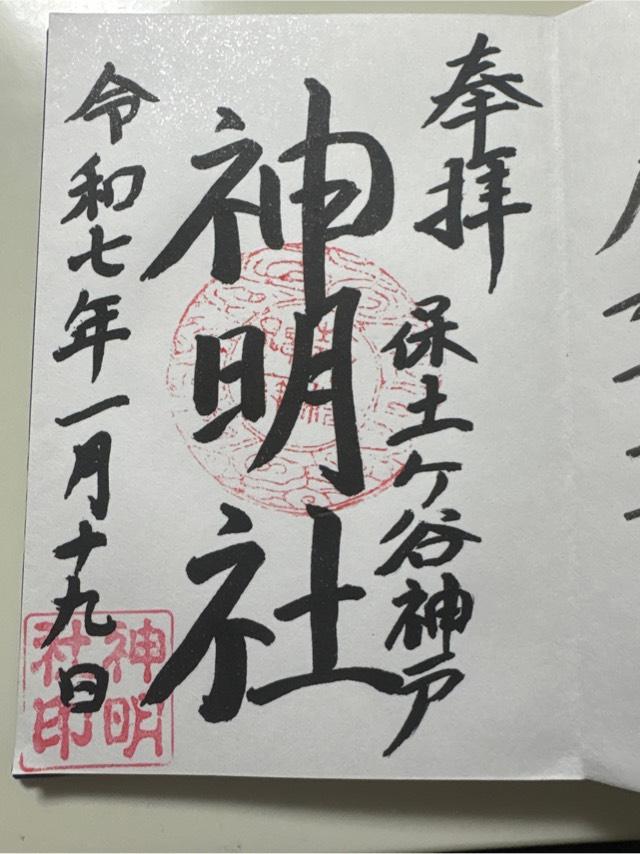 奉拝
保土ケ谷神戸
神明社
令和七年一月十九日
神明
社印